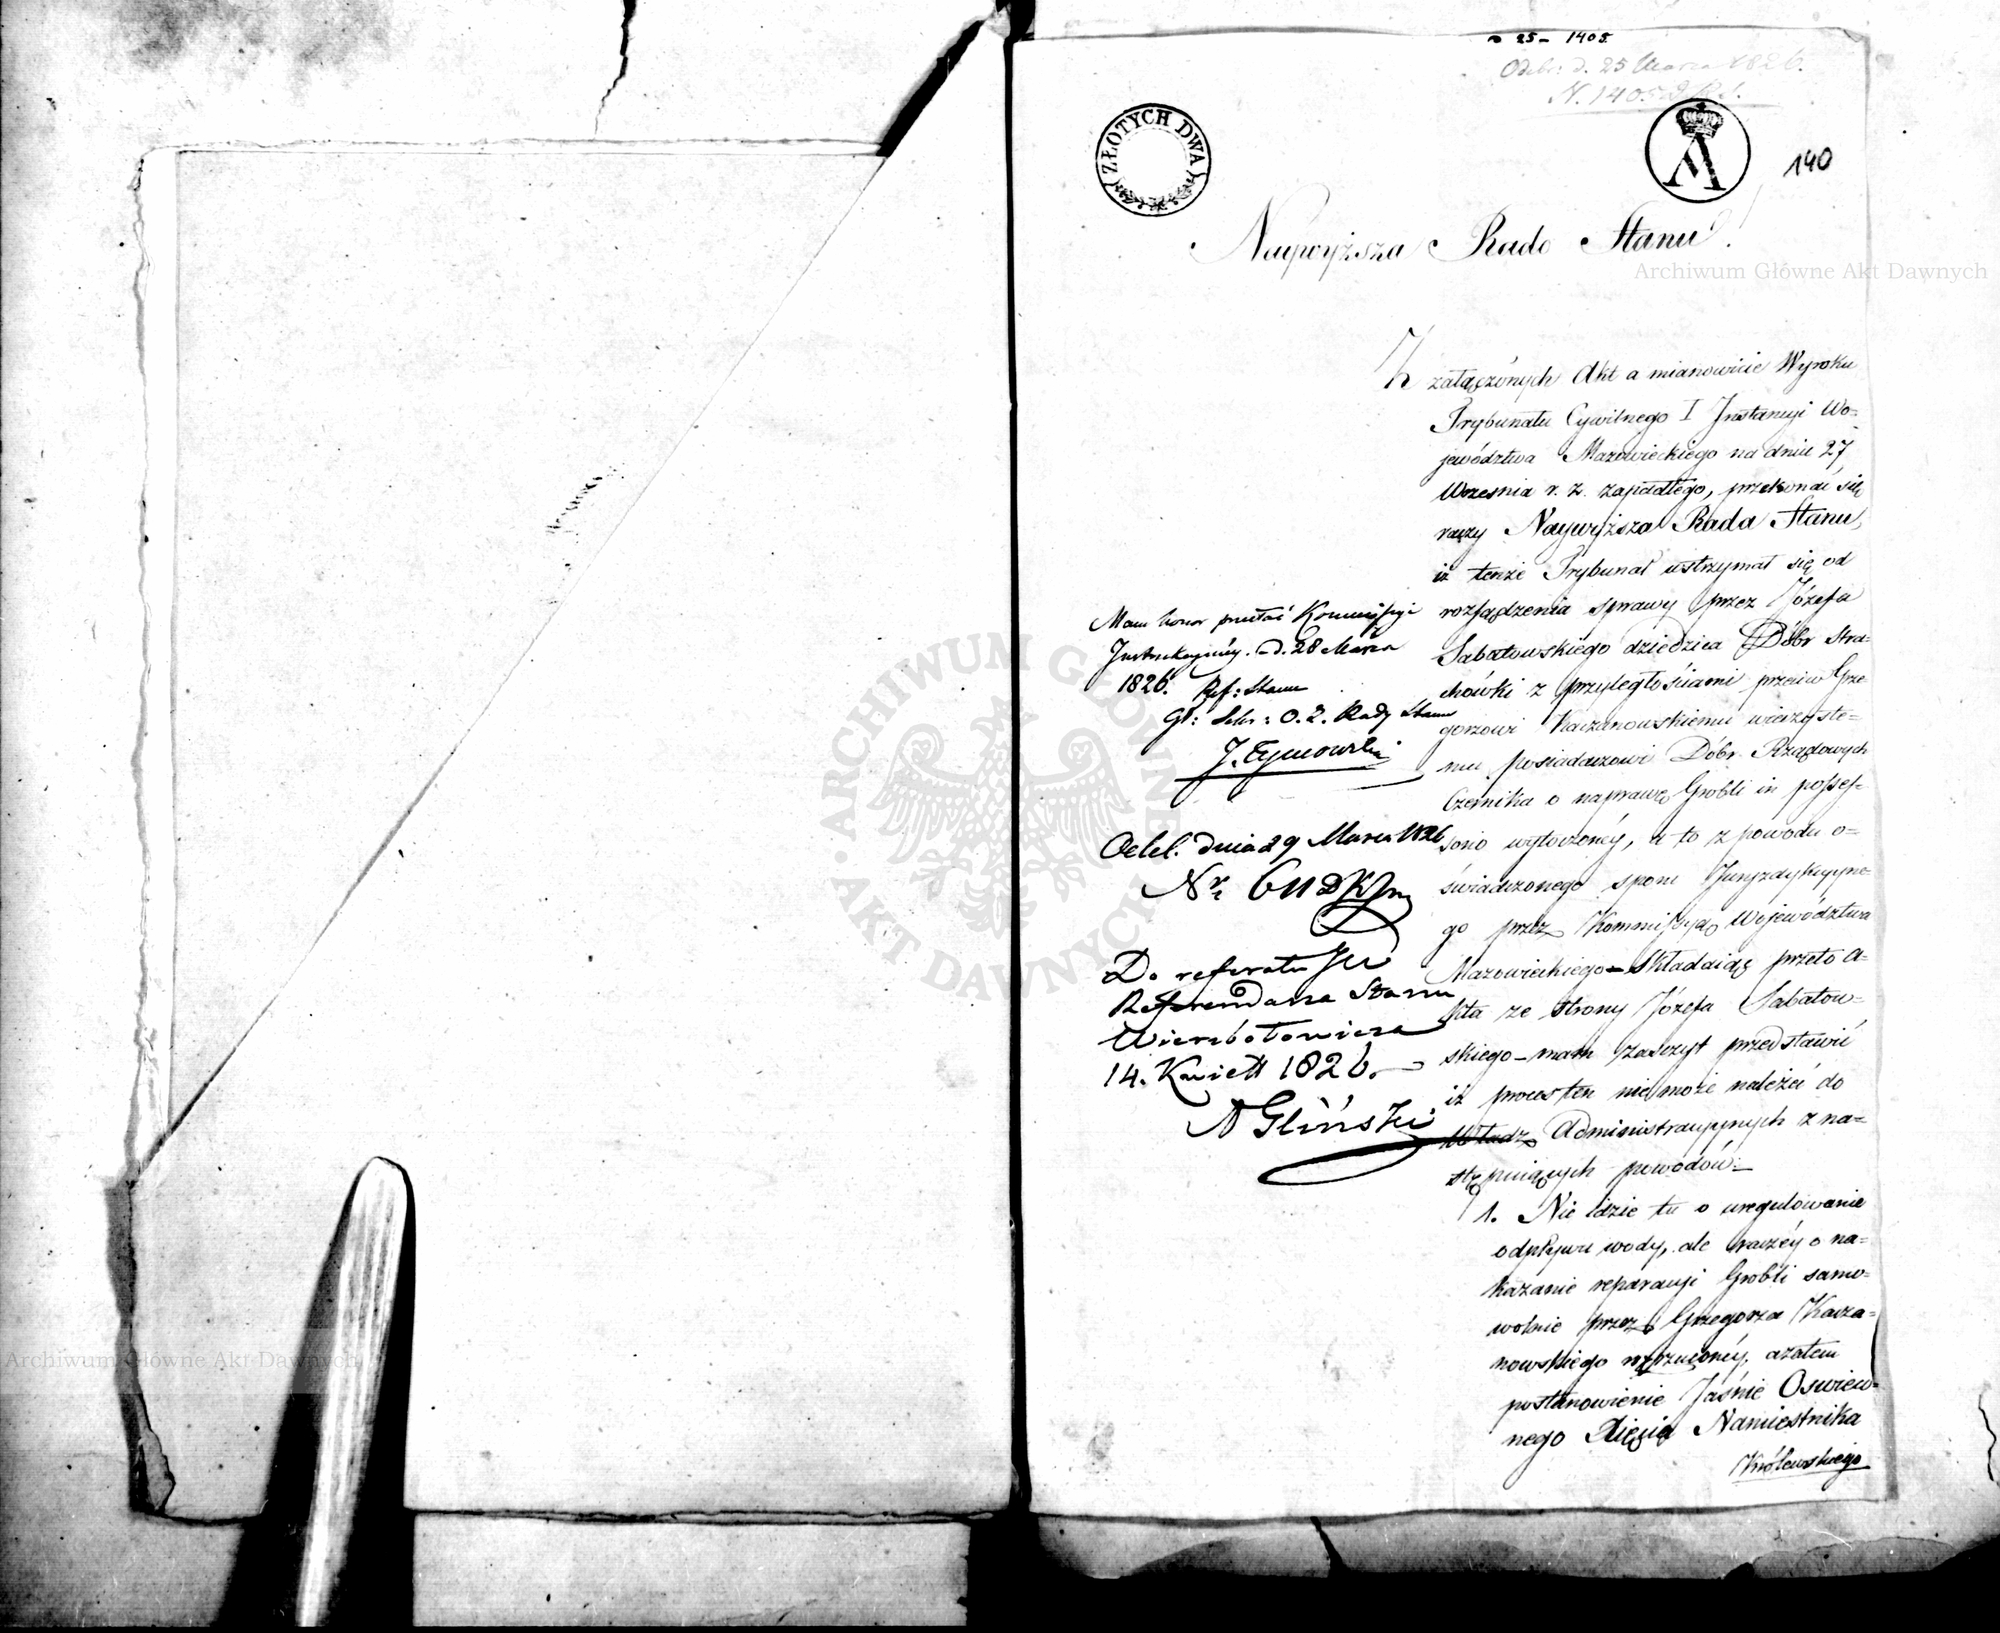 25 - 1405
Odebr: d. 25 Marca 1826.
N. 1405 D.R.S.
ZŁOTYCH DWA
A
140
Naywyższa Rado Stanu!
Archiwum Główne Akt Dawnych
Z załączonych Akt a mianowicie Wyroku
Trybunału Cywilnego I Instancyi Wo=
jewództwa Mazowieckiego na dniu 27
Wrzesnia r. z. zapadłego, przekonać się
raczy Naywyższa Rada Stanu,
iż tenże Trybunał wstrzymał się od
rozsądzenia sprawy przez Józefa
Sabatowskiego dziedzica Dóbr Stra=
chówki z przyległościami przeciw Grze
gorzowi Kaczanowskiemu wieczyste=
mu posiadaczowi Dóbr Rządowych
Czernika o naprawę Grobli in posses=
sorio wytoczoney, a to z powodu o=
świadczonego sporu Jurysdykcyjne
go przez Kommissyą Województwa
Mazowieckiego - Składaiąc przeto A=
kta ze strony Józefa Sabatow=
skiego - mam zaszczyt przedstawić
iż proces ten nie może należeć do
Władz Administracyjnych z na=
stępuiących powodów:
1. Nie idzie tu o uregulowanie
odpływu wody, ale raczéy o na=
kazanie reparacyi Grobli samo=
wolnie przez Grzegorza Kacza=
nowskiego rozrzuconéy, a zatem
postanowienie Jaśnie Oswieco=
nego Xięcia Namiestnika
Królewskiego
Mam honor przesłać Kommissyi
Instrukcyjnéy. d. 28 Marca
1826. Ref: Stanu
Gł: Sekr: O. Z. Rady Stanu
J. Tymowski
Odeb. dnia 29 Marca 1826
Nr 611 DKJn
Do referatu JW
Referendarza Stanu
Wierzbołowicza
14. Kwiett 1826.
A Gliński
ARCHIWUM GŁÓWNE AKT DAWNYCH
Archiwum Główne Akt Dawnych